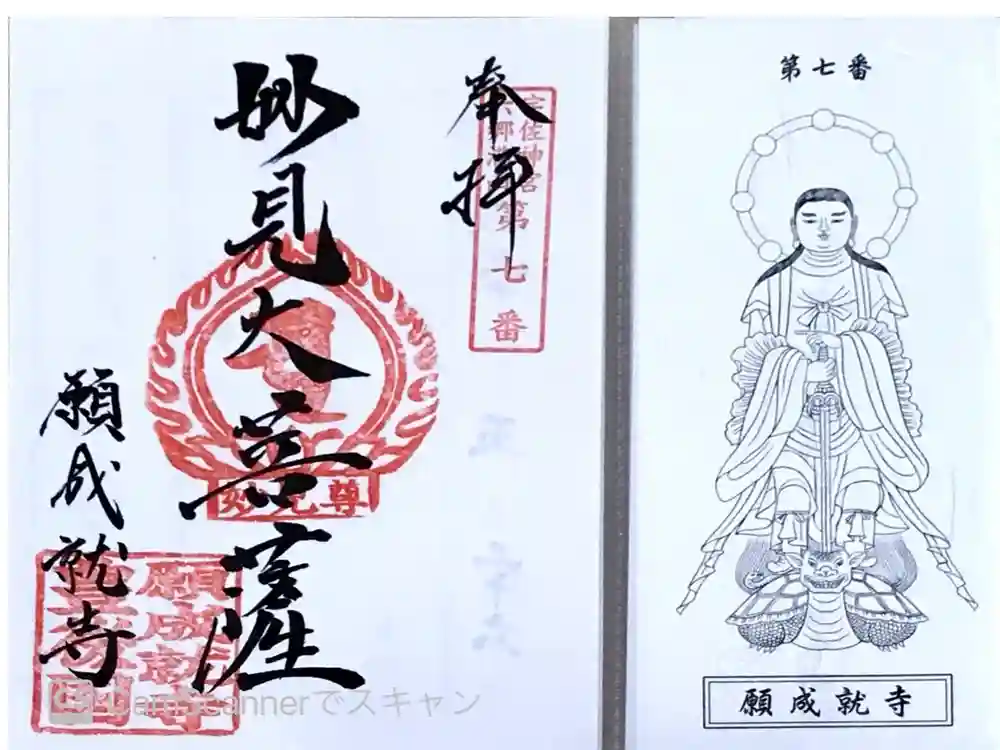 奉拝
宇佐神宮
六郷満山
第七番
妙見大菩薩
妙見尊
願成就寺
願成就寺
CamScannerでスキャン
第七番
願成就寺